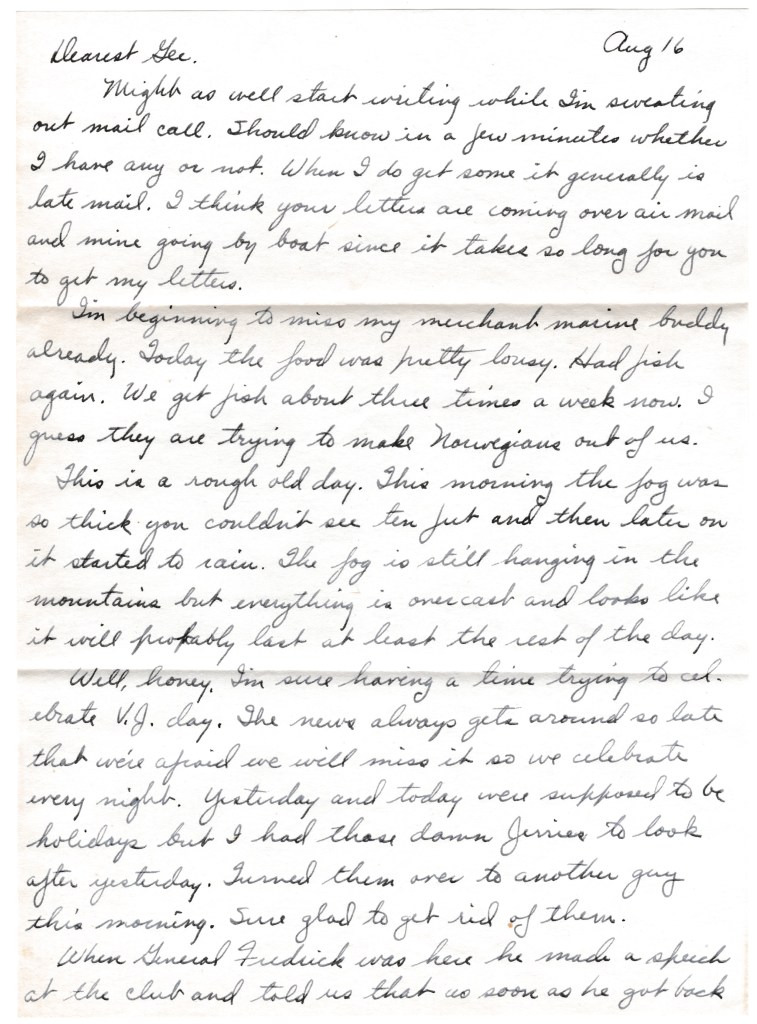 Aug 16
Dearest Gee.
Might as well start writing while I'm sweating
out mail call. Should know in a few minutes whether
I have any or not. When I do get some it generally is
late mail. I think your letters are coming over air mail
and mine going by boat since it takes so long for you
to get my letters.
I'm beginning to miss my merchant marine buddy
already. Today the food was pretty lousy. Had fish
again. We get fish about three times a week now. I
guess they are trying to make Norwegians out of us.
This is a rough old day. This morning the fog was
so thick you couldn't see ten feet and then later on
it started to rain. The fog is still hanging in the
mountains but everything is overcast and looks like
it will probably last at least the rest of the day.
Well, honey, I'm sure having a time trying to cel-
ebrate V.J. day. The news always gets around so late
that we're afraid we will miss it so we celebrate
every night. Yesterday and today were supposed to be
holidays but I had those damn Jerries to look
after yesterday. Turned them over to another guy
this morning. Sure glad to get rid of them.
When General Fredrick was here he made a speech
at the club and told us that as soon as he got back